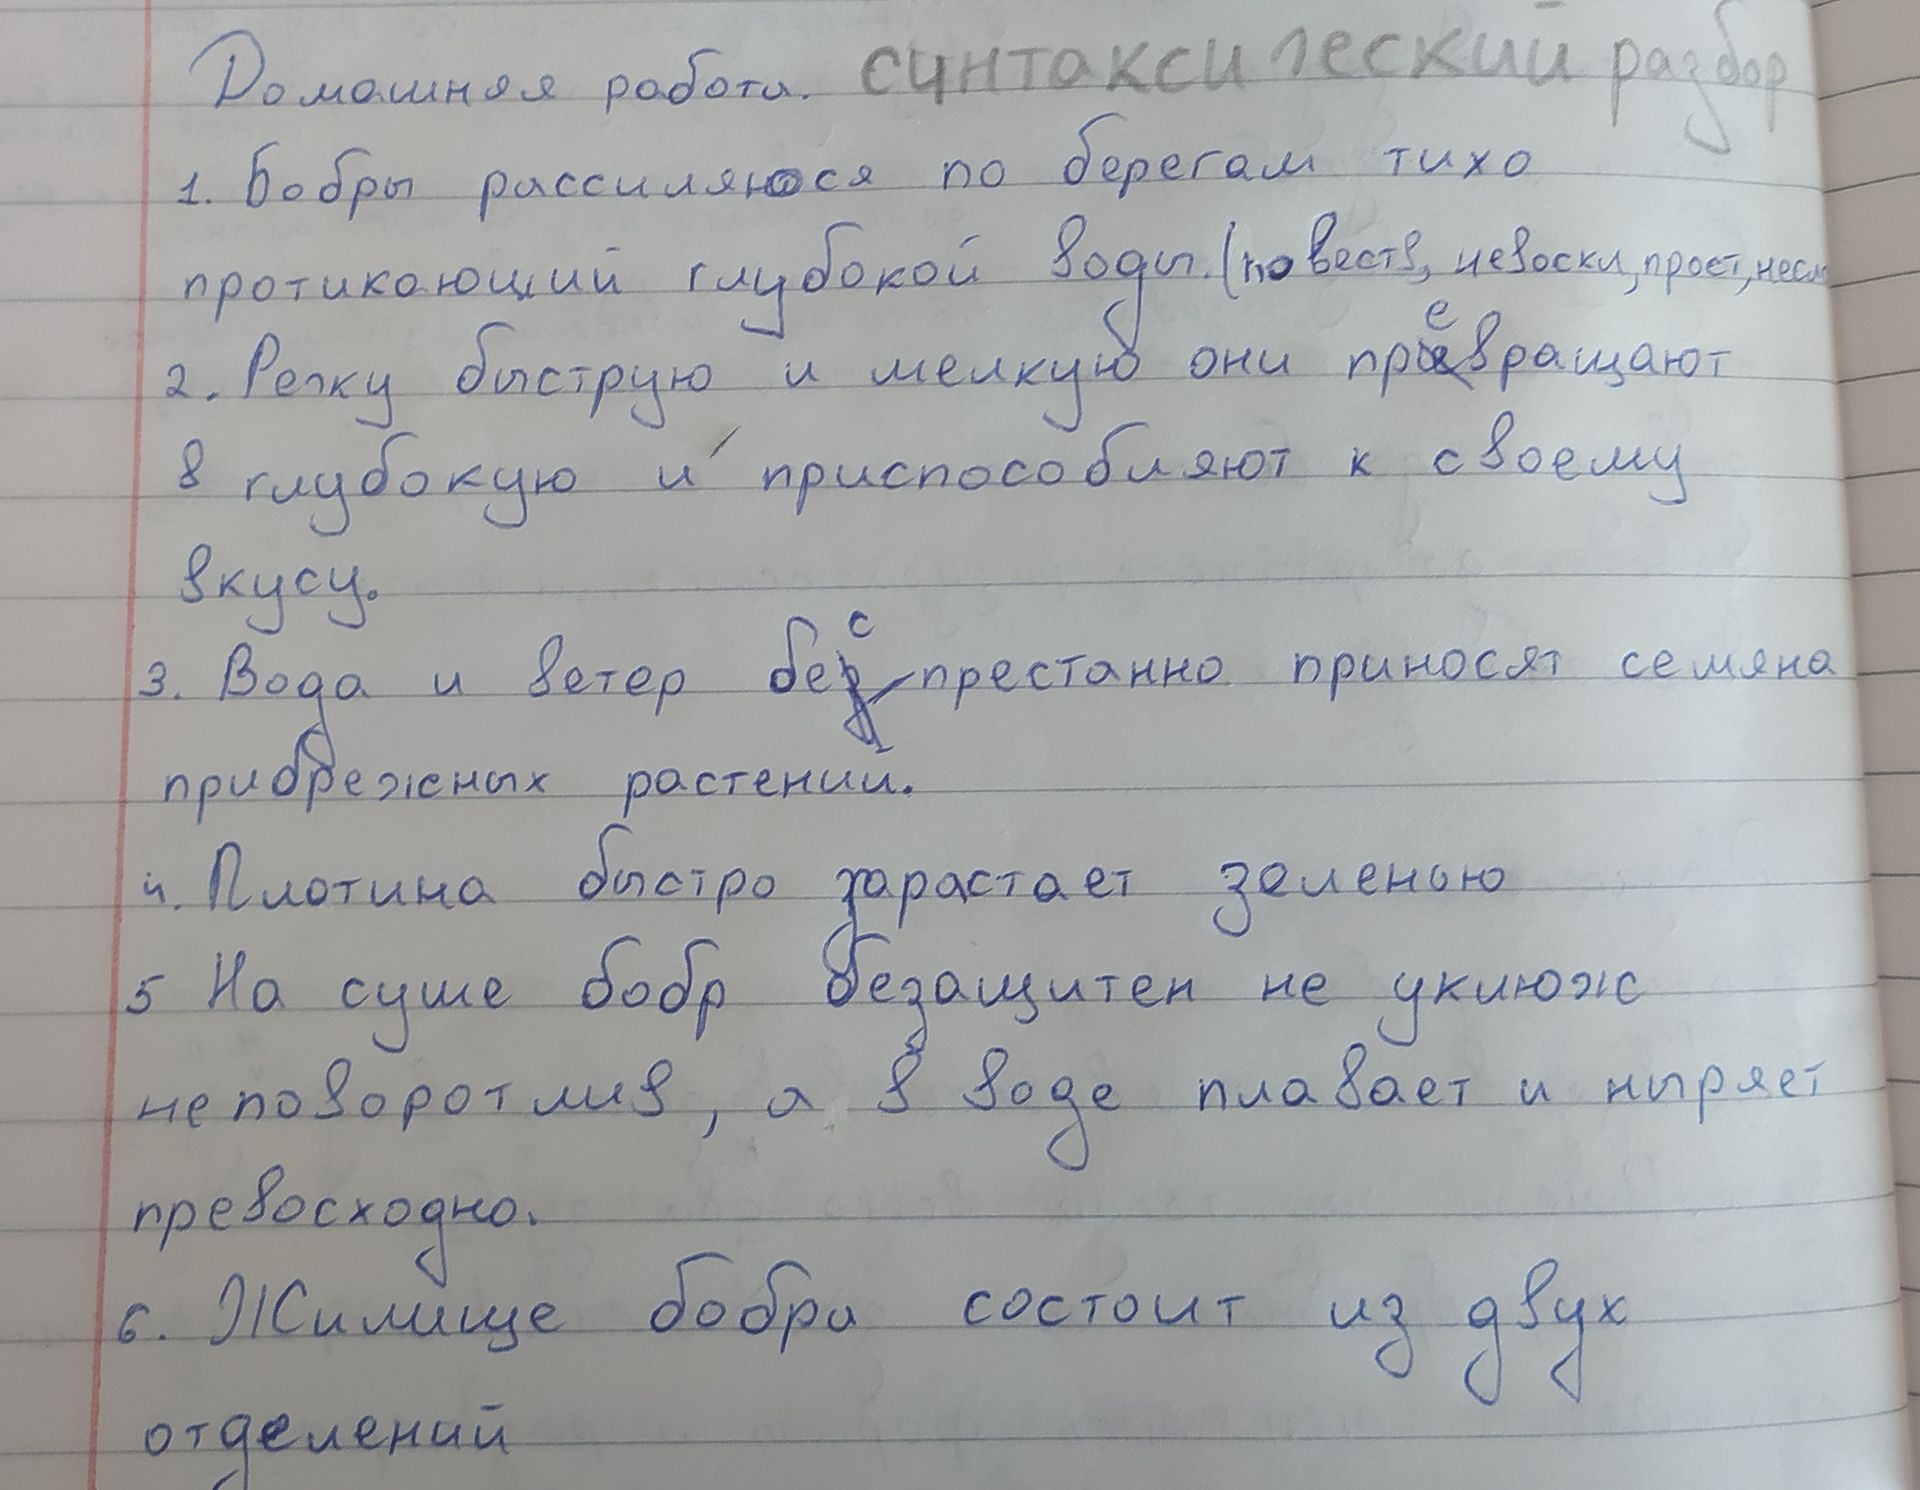 Домашняя работа. синтаксический разбор
1. Бобры рассиляюся по берегам тихо
протикающий глубокой воды. (повеств, невоскл, прост, несл
2. Речку быструю и мелкую они превращают
в глубокую и приспособляют к своему
вкусу.
3. Вода и ветер беспрестанно приносят семяна
прибрежных растений.
4. Плотина быстро зарастает зеленью
5 На суше бобр безащитен не уклюж
неповоротлив, а в воде плавает и ныряет
превосходно.
6. Жилище бобра состоит из двух
отделений